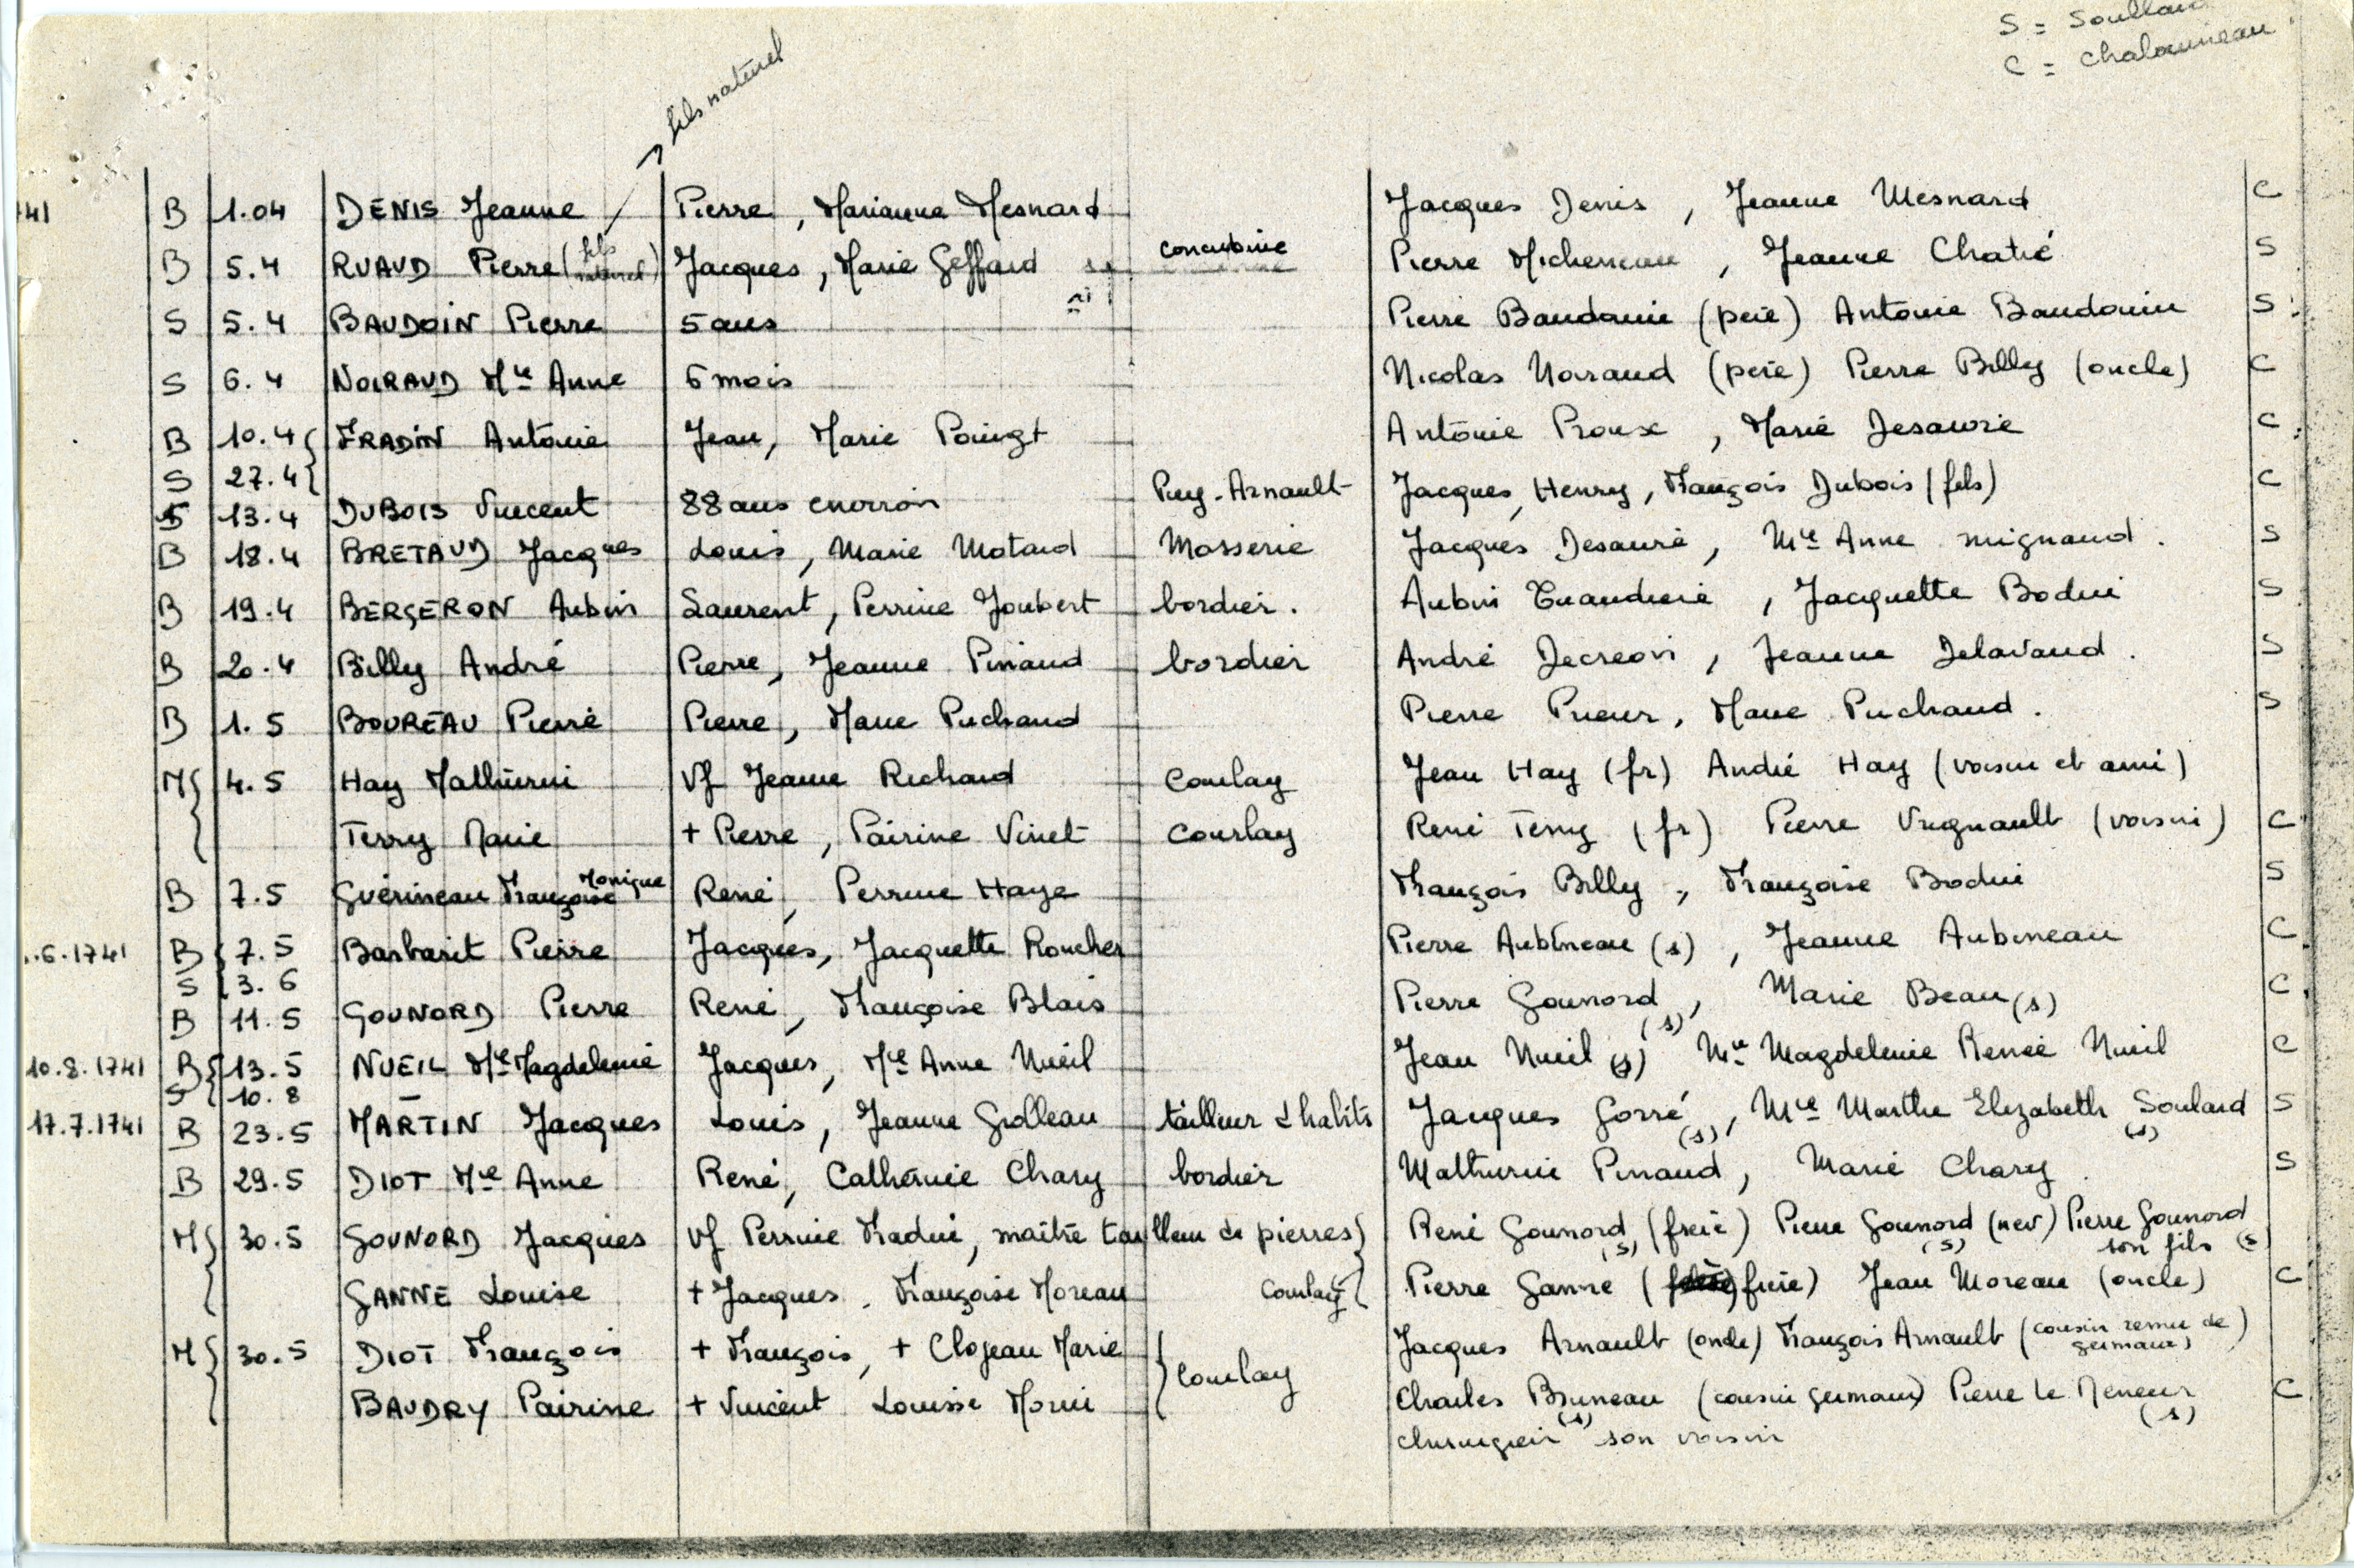 S = Soullard
C = Chalonneau
→ fils naturel
741 B 1.04 DENIS Jeanne Pierre, Marianne Mesnard Jacques Denis, Jeanne Mesnard C
B 5.4 RUAUD Pierre (fils naturel) Jacques, Marie Geffard concubine Pierre Micheneau, Jeanne Chatié S
S 5.4 BAUDOIN Pierre 5 ans Pierre Baudouin (père) Antoine Baudouin S
S 6.4 NOIRAUD Mie Anne 6 mois Nicolas Noiraud (père) Pierre Billy (oncle) C
B 10.4 FRADIN Antoine Jean, Marie Poingt Antoine Proux, Marie Desaivre C
S 27.4
S 13.4 DUBOIS Vincent 88 ans environ Puy-Arnault Jacques Henry, François Dubois (fils) C
B 18.4 BRETAUD Jacques Louis, Marie Motard Mosserie Jacques Desauré, Mie Anne mignaud. S
B 19.4 BERGERON Aubin Laurent, Perrine Joubert bordier. Aubin, Jacquette Bodin S
B 20.4 Billy André Pierre, Jeanne Pinaud bordier André Decreon, Jeanne Delavaud. S
B 1.5 BOUREAU Pierre Pierre, Marie Puichaud Pierre Prieur, Marie Puichaud. S
M 4.5 Hay Mathurin Vf Jeanne Richard Courlay Jean Hay (fr) André Hay (voisin et ami)
Terry Marie + Pierre, Pairine Vinet Courlay René Terry (fr) Pierre Vrignault (voisin) C
B 7.5 Guérineau Françoise Monique René, Perrine Haye François Billy, Françoise Bodin S
.6.1741 B 7.5 Barbarit Pierre Jacques, Jacquette Rocher Pierre Aubineau (s), Jeanne Aubineau C
S 3.6
B 11.5 GOUNORD Pierre René, Françoise Blais Pierre Gounord (s), Marie Beau (s) C
10.8.1741 B 13.5 NUEIL Mie Magdeleine Jacques, Mie Anne Nueil Jean Nueil (s) Mie Magdeleine Renée Nueil C
S 10.8
17.7.1741 B 23.5 MARTIN Jacques Louis, Jeanne Grolleau tailleur d'habits Jacques Gorré (s), Mie Marthe Elizabeth Soulard (s) S
B 29.5 DIOT Mie Anne René, Catherine Chary bordier Mathurin Pinaud, Marie Chary S
M 30.5 GOUNORD Jacques Vf Perrine Fradin, maître tailleur de pierres René Gounord (s) (frère) Pierre Gounord (s) (nev) Pierre Gounord son fils (s)
GANNE Louise + Jacques, Françoise Moreau Courlay Pierre Ganne (frère) Jean Moreau (oncle) C
M 30.5 DIOT François + François, + Clojeau Marie Courlay Jacques Arnault (oncle) François Arnault (cousin remu de germain)
BAUDRY Pairine + Vincent Louise Morin Charles Bruneau (s) (cousin germain) Pierre Le Meneur (s) C
chirurgien son voisin